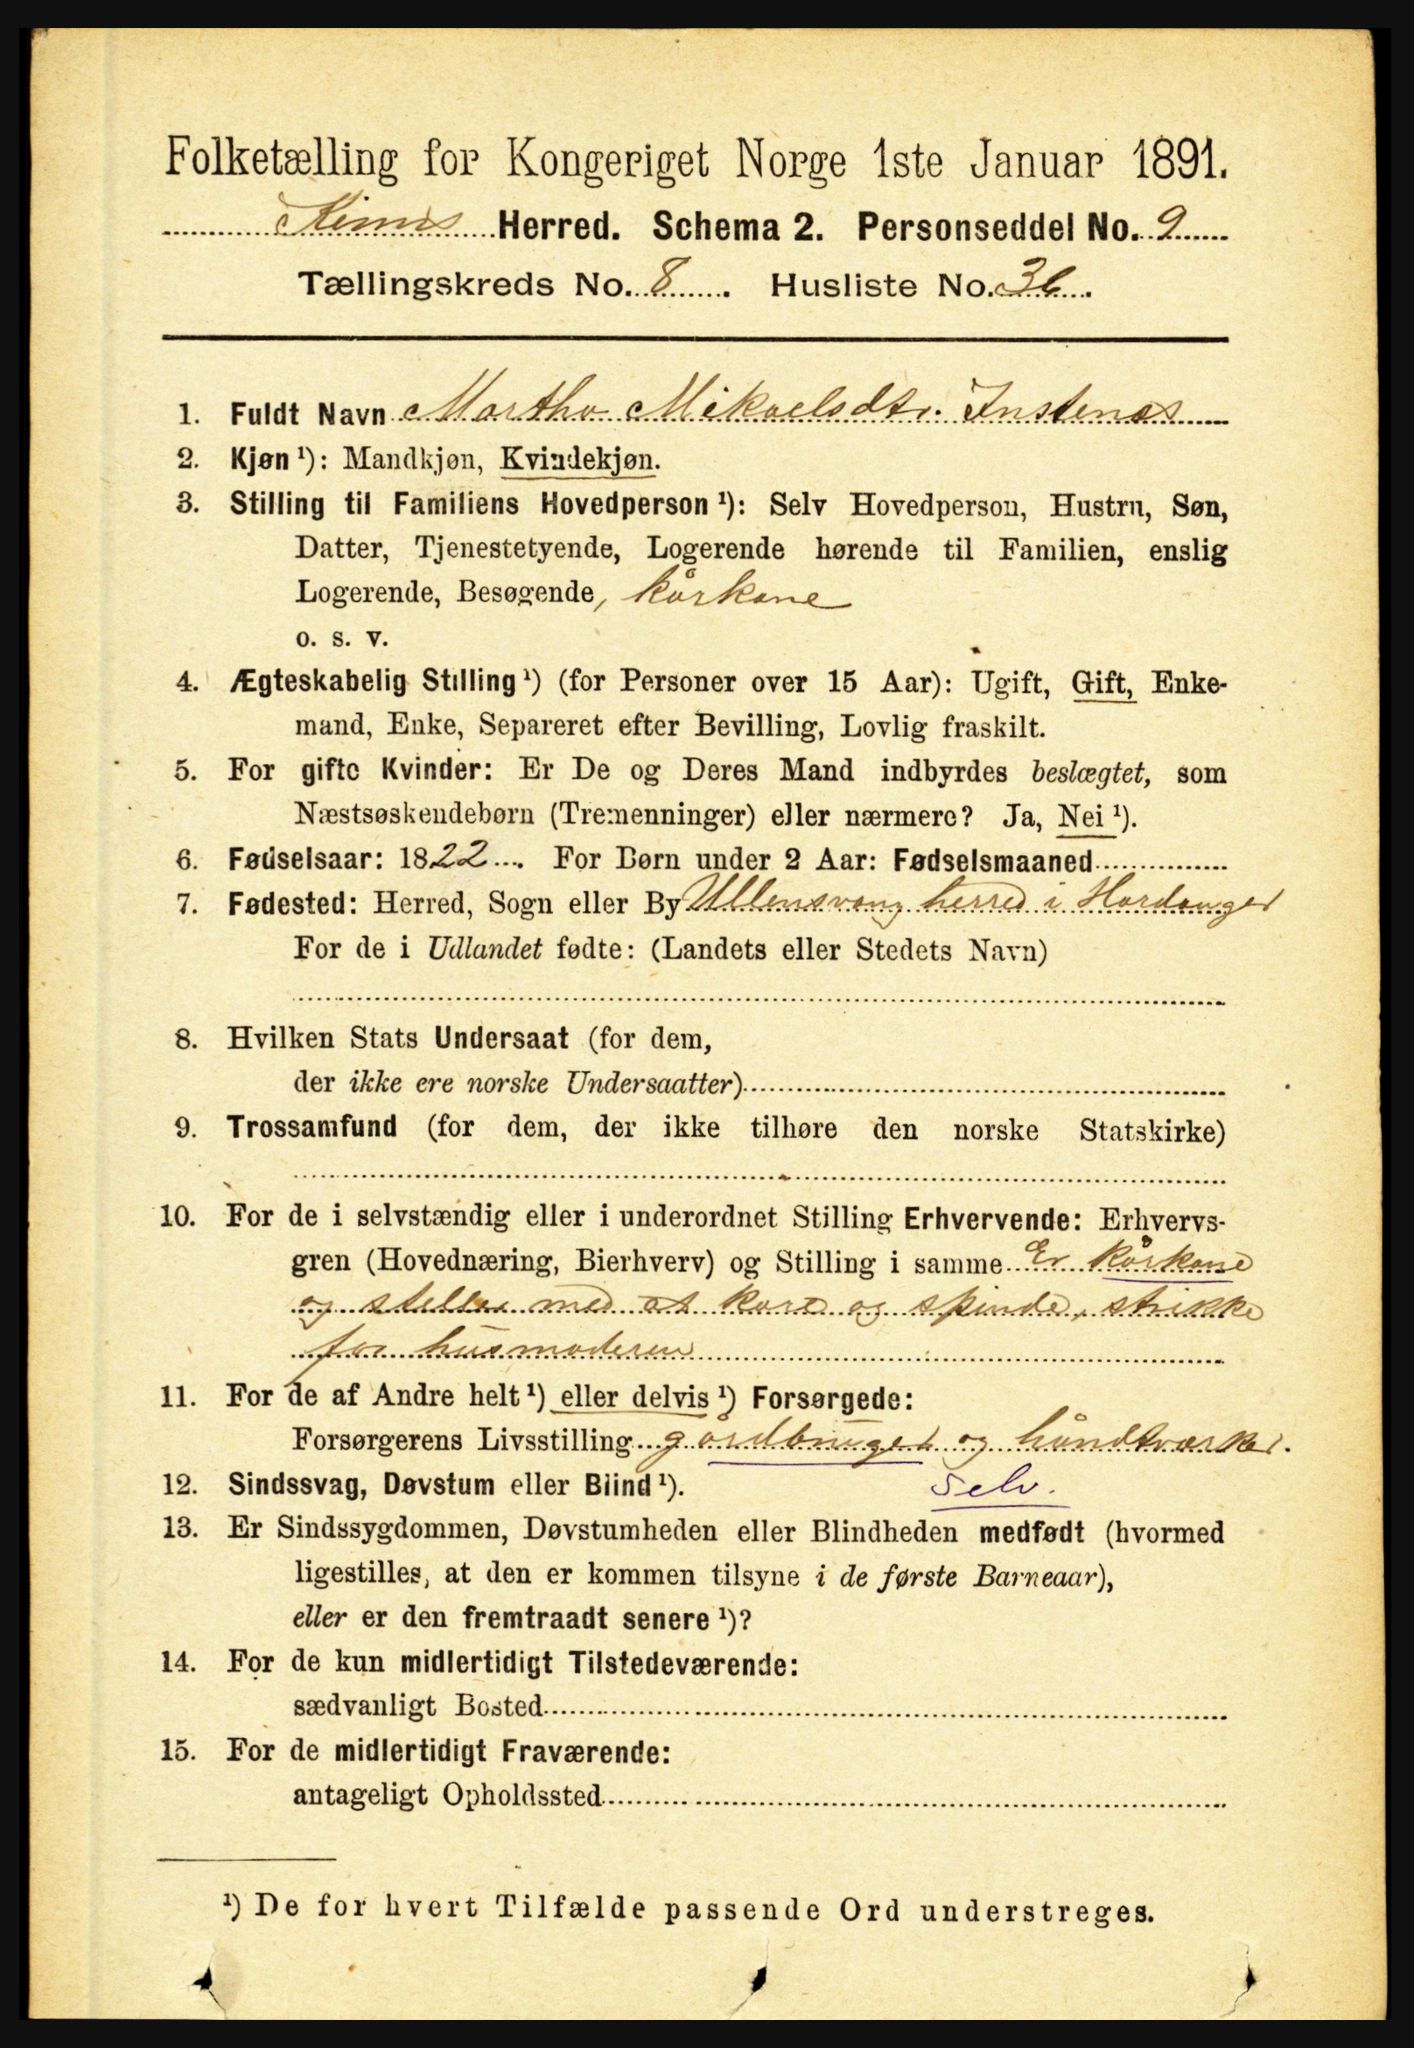 Folketælling for Kongeriget Norge 1ste Januar 1891.
Kinns Herred. Schema 2. Personseddel No. 9
Tællingskreds No. 8. Husliste No. 36.
1. Fuldt Navn Martha Mikaelsdtr. Instenæs
2. Kjøn ¹): Mandkjøn, Kvindekjøn.
3. Stilling til Familiens Hovedperson ¹): Selv Hovedperson, Hustru, Søn,
Datter, Tjenestetyende, Logerende hørende til Familien, enslig
Logerende, Besøgende, kårkone
o. s. v.
4. Ægteskabelig Stilling ¹) (for Personer over 15 Aar): Ugift, Gift, Enke-
mand, Enke, Separeret efter Bevilling, Lovlig fraskilt.
5. For gifte Kvinder: Er De og Deres Mand indbyrdes beslægtet, som
Næstsøskendebørn (Tremenninger) eller nærmere? Ja, Nei ¹).
6. Fødselsaar: 1822. For Børn under 2 Aar: Fødselsmaaned
7. Fødested: Herred, Sogn eller By Ullensvang herred i Hardanger
For de i Udlandet fødte: (Landets eller Stedets Navn)
8. Hvilken Stats Undersaat (for dem,
der ikke ere norske Undersaatter)
9. Trossamfund (for dem, der ikke tilhøre den norske Statskirke)
10. For de i selvstændig eller i underordnet Stilling Erhvervende: Erhvervs-
gren (Hovednæring, Bierhverv) og Stilling i samme Er kårkone
og steller med at kare og spinde, strikke
for husmoderen
11. For de af Andre helt ¹) eller delvis ¹) Forsørgede:
Forsørgerens Livsstilling gårdbruger og håndtværker.
12. Sindssvag, Døvstum eller Blind ¹). Selv.
13. Er Sindssygdommen, Døvstumheden eller Blindheden medfødt (hvormed
ligestilles, at den er kommen tilsyne i de første Barneaar),
eller er den fremtraadt senere ¹)?
14. For de kun midlertidigt Tilstedeværende:
sædvanligt Bosted
15. For de midlertidigt Fraværende:
antageligt Opholdssted
¹) De for hvert Tilfælde passende Ord understreges.